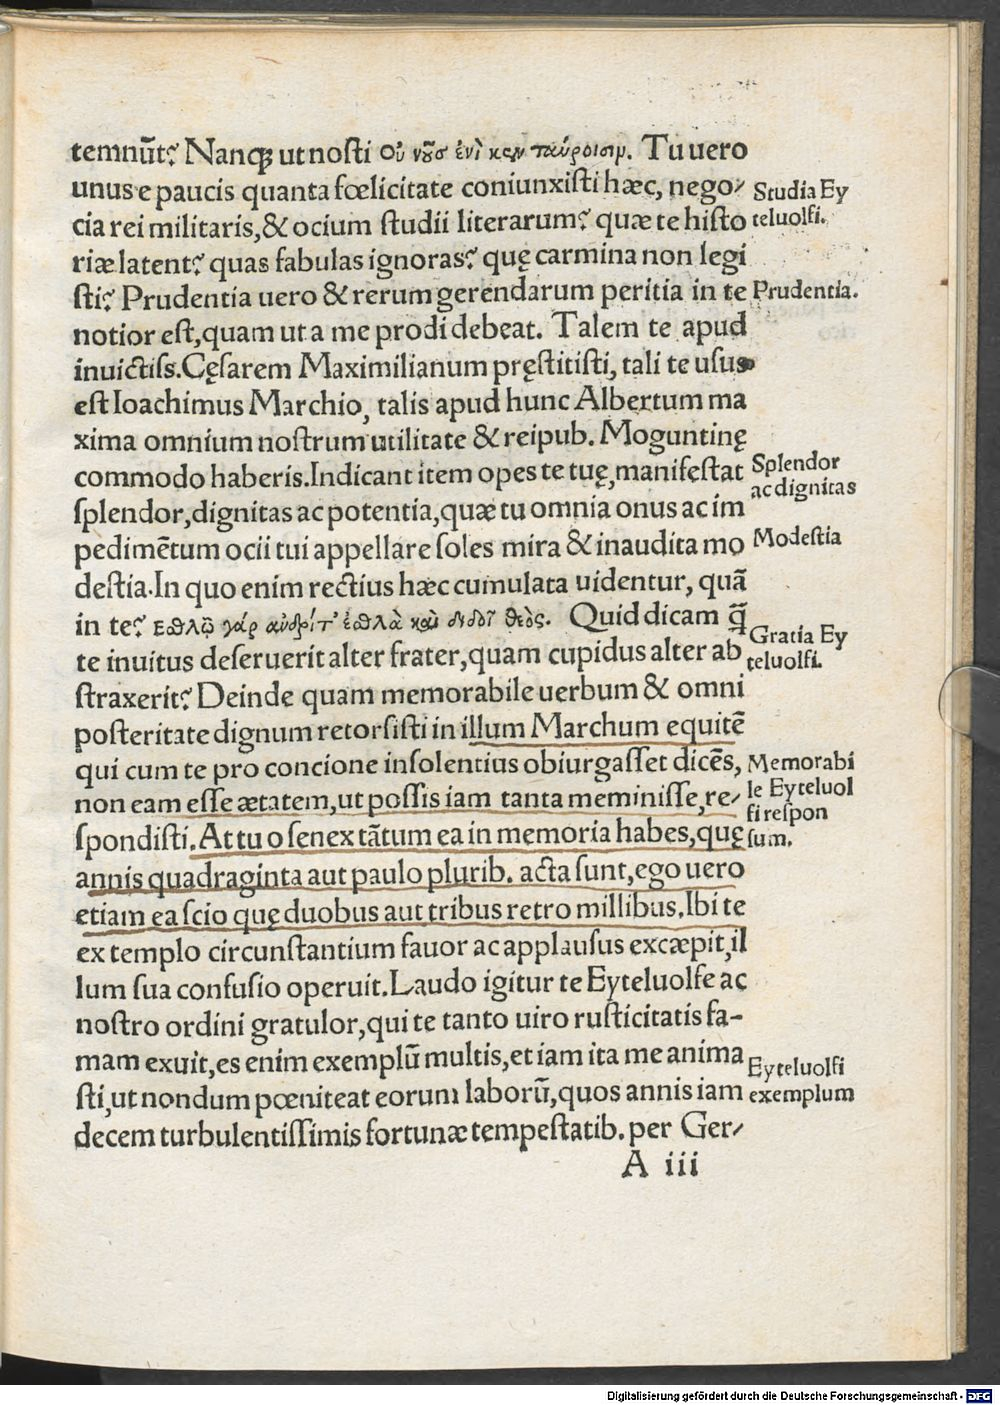 temnūt? Nanqꝫ ut nosti Οὐ νοῦσ ἐνὶ κεν ταύροισιν. Tu uero
unus e paucis quanta fœlicitate coniunxisti hæc, nego/
cia rei militaris, & ocium studii literarum? quæ te histo
riæ latent? quas fabulas ignoras? quę carmina non legi
sti? Prudentia uero & rerum gerendarum peritia in te
notior est, quam ut a me prodi debeat. Talem te apud
inuictiss. Cęsarem Maximilianum pręstitisti, tali te usus
est Ioachimus Marchio, talis apud hunc Albertum ma
xima omnium nostrum utilitate & reipub. Moguntinę
commodo haberis. Indicant item opes te tuę, manifestat
splendor, dignitas ac potentia, quæ tu omnia onus ac im
pedimētum ocii tui appellare soles mira & inaudita mo
destia. In quo enim rectius hæc cumulata uidentur, quā
in te? γάρ καὶ θεὸς. Quid dicam q̄
te inuitus deseruerit alter frater, quam cupidus alter ab
straxerit? Deinde quam memorabile uerbum & omni
posteritate dignum retorsisti in illum Marchum equitē
qui cum te pro concione insolentius obiurgasset dicēs,
non eam esse ætatem, ut possis iam tanta meminisse, re/
spondisti. At tu o senex tātum ea in memoria habes, quę
annis quadraginta aut paulo plurib. acta sunt, ego uero
etiam ea scio quę duobus aut tribus retro millibus. Ibi te
ex templo circunstantium fauor ac applausus excæpit, il
lum sua confusio operuit. Laudo igitur te Eyteluolfe ac
nostro ordini gratulor, qui te tanto uiro rusticitatis fa-
mam exuit, es enim exemplū multis, et iam ita me anima
sti, ut nondum pœniteat eorum laborū, quos annis iam
decem turbulentissimis fortunæ tempestatib. per Ger/
A iii
Studia Ey
teluolfi.
Prudentia.
Splendor
ac dignitas
Modestia
Gratia Ey
teluolfi.
Memorabi
le Eyteluol
fi respon
sum.
Eyteluolfi
exemplum
Digitalisierung gefördert durch die Deutsche Forschungsgemeinschaft - DFG